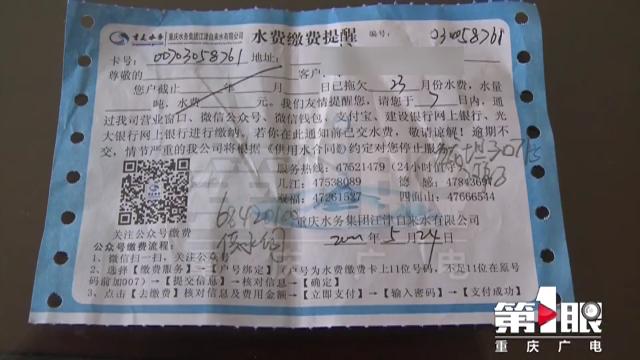 重庆水务 重庆水务集团江津自来水有限公司 水费缴费提醒 编号: 030058761
卡号: 00703058761 地址:
尊敬的 客户:
您户截止 年 月 日已拖欠 23 月份水费，水量
吨，水费 元。我们友情提醒您，请您于 7 日内，通
过我司营业窗口、微信公众号、微信钱包、支付宝、建设银行网上银行、光
大银行网上银行进行缴纳，若你在此通知前已交水费，敬请谅解！逾期不
交，情节严重的我公司将根据《供用水合同》约定对您停止服务
服务热线: 47521479（24小时值
几江: 47538089 德感: 47843691
双福: 47261527 四面山: 47666544
重庆水务集团江津自来水有限公司
年 5 月 24 日
关注公众号缴费
公众号缴费流程:
1、微信扫一扫，关注公众号
2、选择【缴费服务】→【户号绑定】（户号为水费缴费卡上11位号码，不足11位在原号
码前加007）→【提交信息】→核对信息→【确定】
3、点击【去缴费】核对信息及费用金额→【立即支付】→【输入密码】→【支付成功】
第1眼
重庆广电